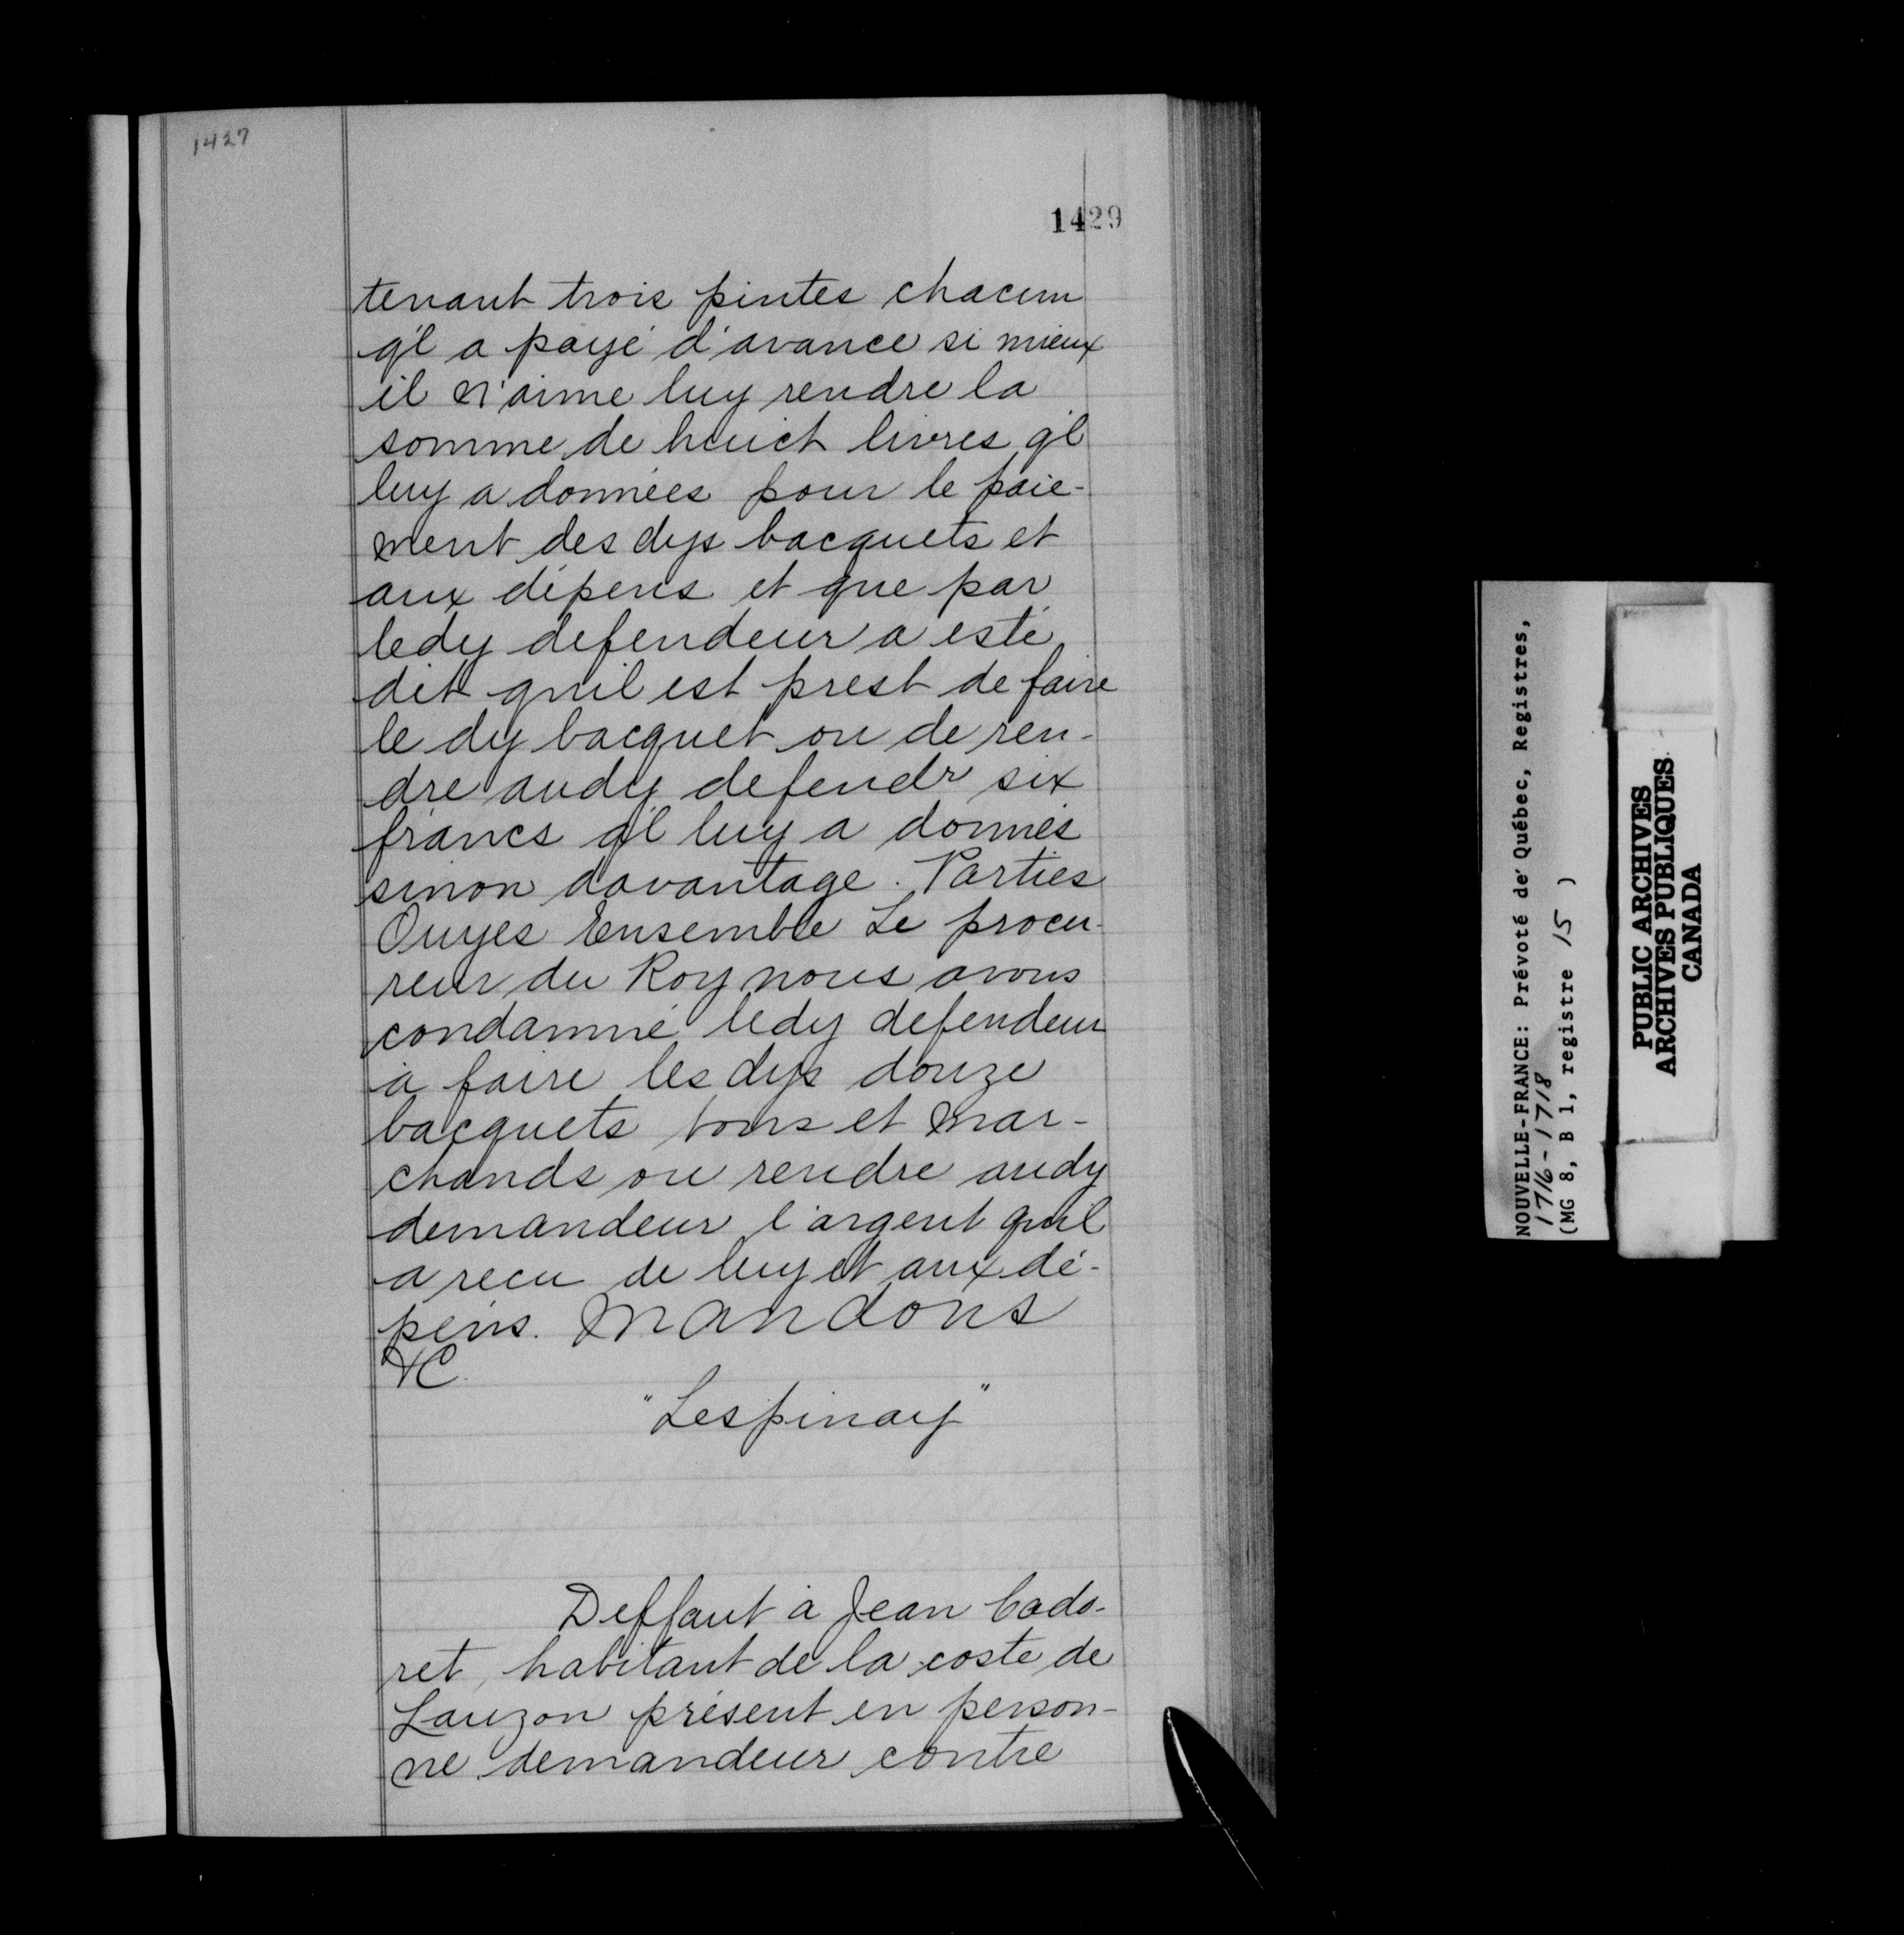 1427
1429
tenant trois pintes chacun
q'l a payé d'avance si mieux
il n'aime luy rendre la
somme de huict livres q'l
luy a données pour le paie-
ment des dys bacquets et
aux dépens et que par
ledy defendeur a esté
dit qu'il est prest de faire
le dy bacquet ou de ren-
dre audy defendr six
francs q'l luy a donnés
sinon davantage. Parties
Ouyes Ensemble Le procu-
reur du Roy nous avons
condamné ledy defendeur
à faire les dys douze
bacquets bons et mar-
chands ou rendre audy
demandeur l'argent qu'il
a recu de luy et aux dé-
pens. Mandons
&C.
"Lespinay"
Deffaut à Jean Cado-
ret, habitant de la coste de
Lauzon présent en person-
ne demandeur contre
NOUVELLE-FRANCE: Prévoté de Québec, Registres,
1716-1718
(MG 8, B 1, registre 15 )
PUBLIC ARCHIVES
ARCHIVES PUBLIQUES
CANADA